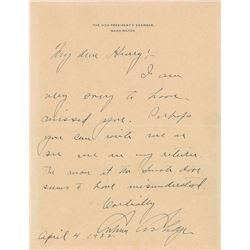 THE VICE PRESIDENT'S CHAMBER
WASHINGTON
My dear Henry:-
I am
very sorry to have
missed you. Perhaps
you can write me or
see me on my return.
The man at the door
seems to have misunderstood.
Cordially
Calvin Coolidge
April 4